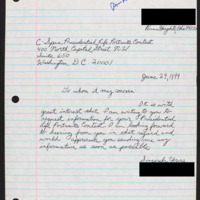 C-Span Presidential Life Portraits Contest
400 North Capitol Street N.W.
Suite 650
Washington D.C. 20001
June 29, 1999
To whom it may concern
It is with
great interest that I am writing to you to
request information for your Presidential
Life Portraits Contest. I am looking forward
to hearing from you in that regard and
would appreciate you sending me any
information as soon as possible.